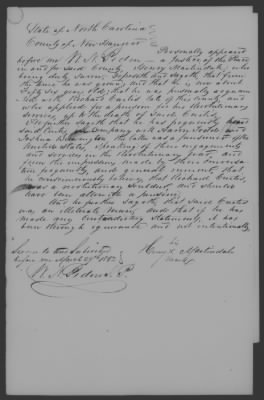 State of North Carolina
County of New Hanover
Personally appeared
before me W. N. Peden a Justice of the Peace
in and for said County, Henry Martindale, who
being duly sworn, deposeth and sayeth that from
the time he was young, and that he is now about
Fifty six years old; that he was personally acquain
ted with Richard Curtis late of this County, and
who applied for a pension for his Revolutionary
services, up to the death of said Curtis
He further sayeth that he has frequently heard
said Curtis, in company with Aaron
Joshua the latter was a pensioner of the
United States, speaking of their engagements
and services in the Revolutionary war, and
from the made by their conversation
frequently and general, that
he conscientiously believes that Richard Curtis,
was a revolutionary soldier, and should
have been allowed a pension.
And he further sayeth that said Curtis
was an illiterate man, and that if he has
made any contradictory statements, it has
been through ignorance and not intentionally
Sworn to and Subscribed
before me April 29th
his
Henry X Martindale
mark
W. N. Peden J. P.